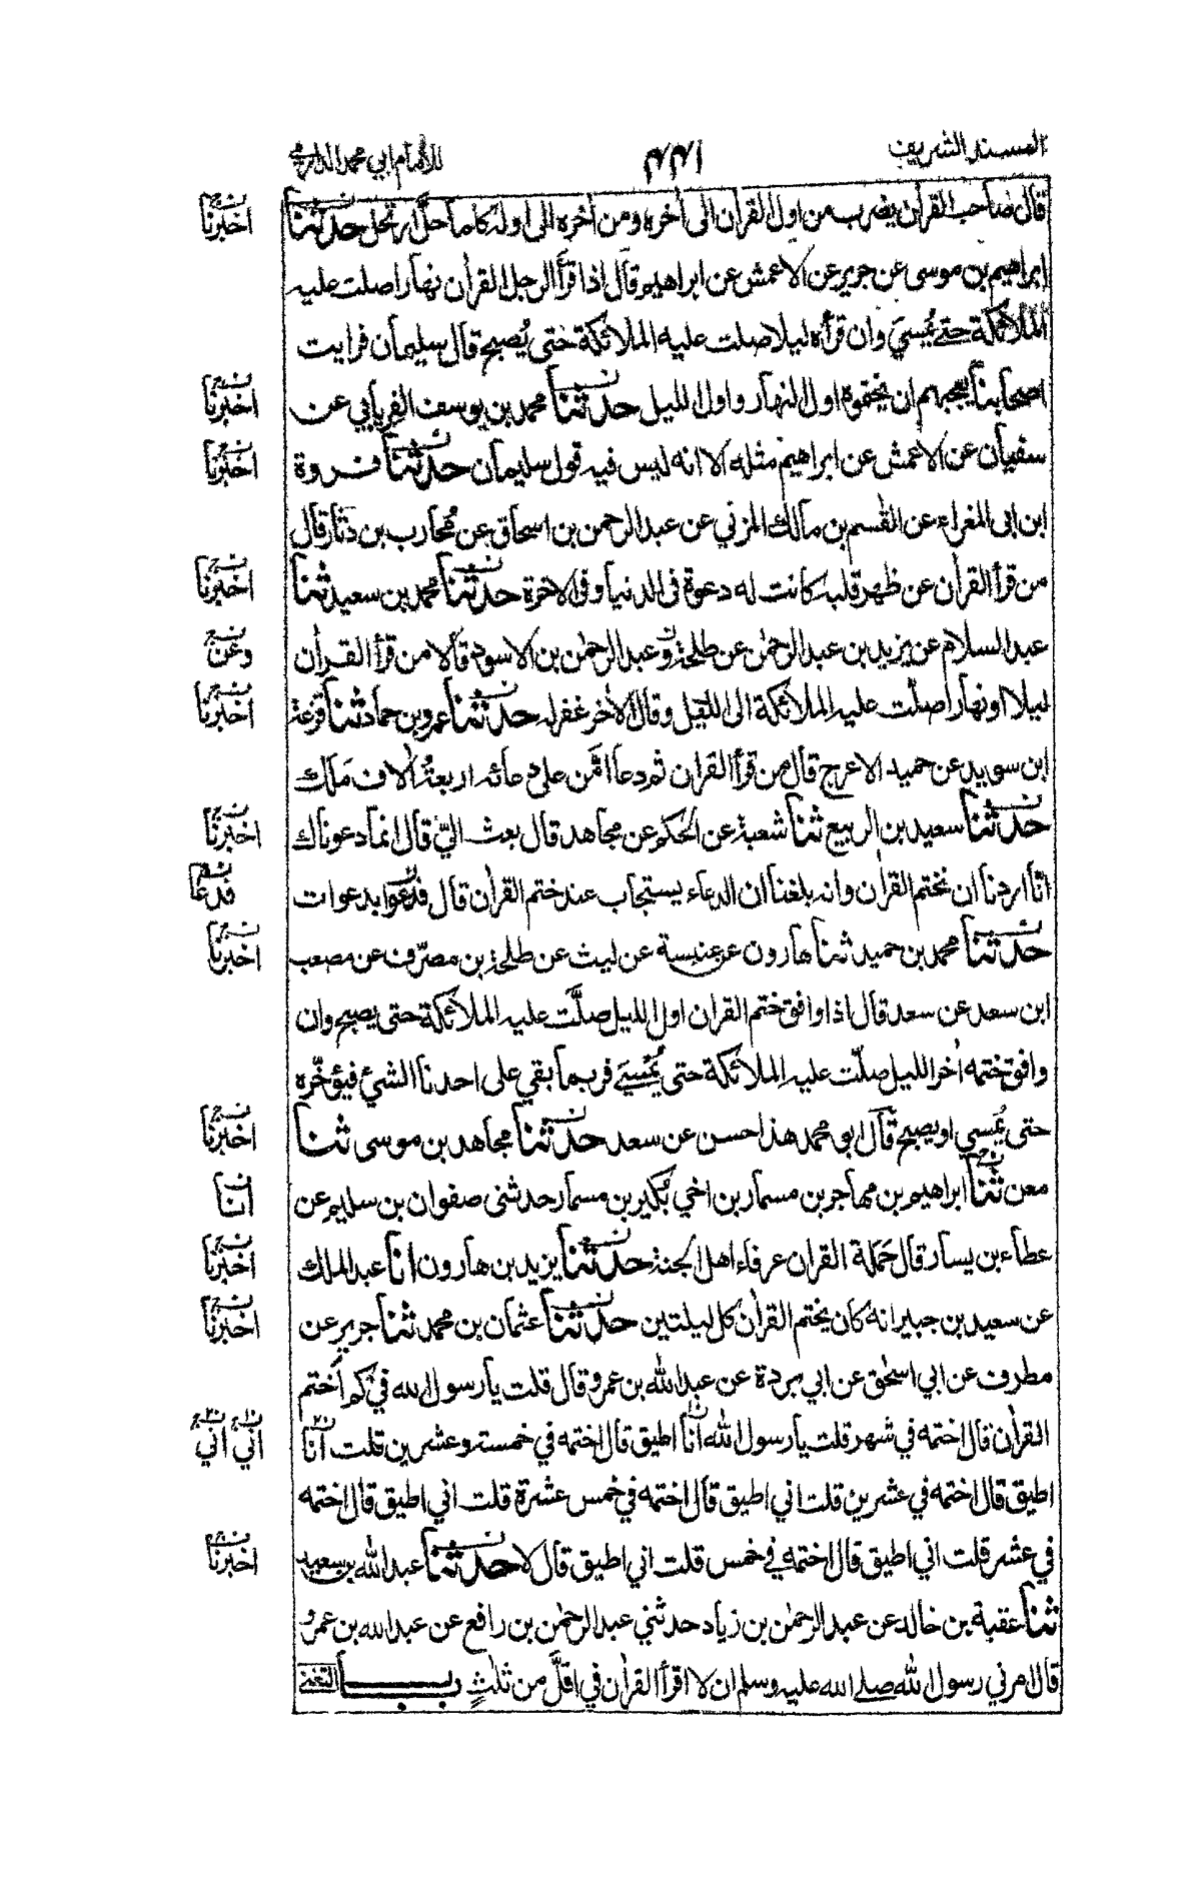 المسند الشريف
٤٤١
للامام ابي محمد الدارمي
قال صاحب القران يضرب من اول القران الى اٰخره ومن اٰخره الى اوله كلما حلّ ارتحل حدثنا
اخبرنا
ابراهيم بن موسى عن جرير عن الاعمش عن ابراهيم قال اذا قرأ الرجل القراٰن نهارا صلت عليه
الملائكة حتى يُمسيَ وان قرأه ليلا صلت عليه الملائكة حتى يُصبح قال سليمان فرايت
اصحابنا يعجبهم ان يختموه اول النهار واول الليل حدثنا محمد بن يوسف الفريابي عن
اخبرنا
سفيان عن الاعمش عن ابراهيم مثله الا انه ليس فيه قول سليمان حدثنا فروة
اخبرنا
ابن ابى المغراء عن القٰسم بن مالك المزني عن عبد الرحمن بن اسحاق عن مُحارب بن دثار قال
من قرأ القراٰن عن ظهر قلبه كانت له دعوة فى الدنيا وفى الاخرة حدثنا محمد بن سعيد ثنا
اخبرنا
عبد السلام عن يزيد بن عبد الرحمٰن عن طلحة وعبد الرحمٰن بن الاسود قالا من قرأ القراٰن
وعن
ليلا او نهارا صلّت عليه الملائكة الى الليل وقال الاٰخر غفر له حدثنا عمرو بن حماد ثنا قزعة
اخبرنا
ابن سويد عن حميد الاعرج قال من قرأ القران ثم دعا امّن على دعائه اربعةُ اٰلاف مَلَك
حدثنا سعيد بن الربيع ثنا شعبة عن الحكم عن مجاهد قال بعث اليّ قال انما دعوناك
اخبرنا
انا اردنا ان نختم القراٰن وانه بلغنا ان الدعاء يستجاب عند ختم القراٰن قال فدعوا بدعوات
فدعا
حدثنا محمد بن حميد ثنا هارون عن عنبسة عن ليث عن طلحة بن مصرّف عن مصعب
اخبرنا
ابن سعد عن سعد قال اذا وافق ختم القران اول الليل صلَّت عليه الملائكة حتى يصبح وان
وافق ختمه اٰخر الليل صلّت عليه الملائكة حتى يُمْسيَ فربما بقي على احدنا الشئ فيؤخّره
حتى يُمسي او يصبح قال ابو محمد هذا حسن عن سعد حدثنا مجاهد بن موسى ثنا
اخبرنا
معن ثنا ابراهيم بن مهاجر بن مسمار بن اخي بُكير بن مسمار حدثنى صفوان بن سليم عن
انا
عطاء بن يسار قال حَمَلة القران عرفاء اهل الجنة حدثنا يزيد بن هارون انا عبد الملك
اخبرنا
عن سعيد بن جبير انه كان يختم القراٰن كل ليلتين حدثنا عثمان بن محمد ثنا جرير عن
اخبرنا
مطرف عن ابي اسحٰق عن ابي بردة عن عبد الله بن عمرو قال قلت يا رسول الله في كم اختم
القراٰن قال اختمه في شهر قلت يا رسول الله انا اطيق قال اختمه في خمسة وعشرين قلت انا
اني اني
اطيق قال اختمه في عشرين قلت اني اطيق قال اختمه في خمس عشرة قلت اني اطيق قال اختمه
في عشر قلت اني اطيق قال اختمه في خمس قلت اني اطيق قال لا حدثنا عبد الله بن سعيد
اخبرنا
ثنا عقبة بن خالد عن عبد الرحمٰن بن زياد حدثني عبد الرحمٰن بن رافع عن عبد الله بن عمرو
قال امرني رسول الله صلى الله عليه وسلم ان لا اقرأ القراٰن في اقلَّ من ثلٰثٍ بـــاب التغني